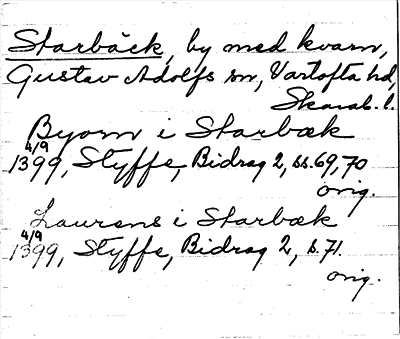 Starbäck, by med kvarn,
Gustav Adolfs sn, Vartofta hd,
Skarab. l.
Byorn i Starbæk
4/9
1399, Styffe, Bidrag 2, ss. 69, 70
orig.
Laurens i Starbæk
4/9
1399, Styffe, Bidrag 2, s. 71.
orig.